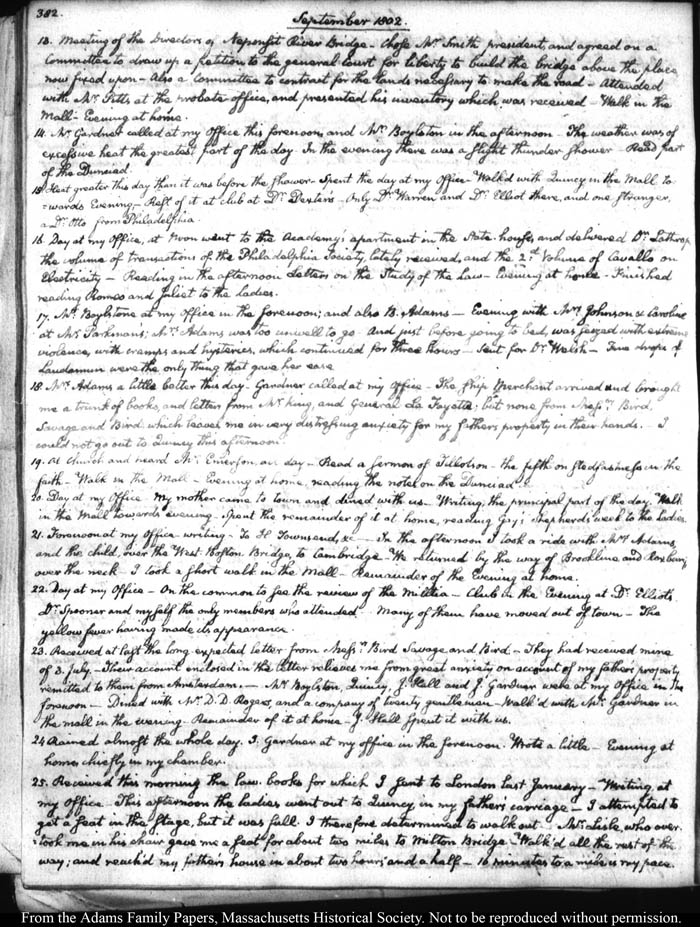 382.
September 1802.
13. Meeting of the Directors of Neponsit River Bridge - Chose Mr Smith president, and agreed on a
Committee to draw up a petition to the general Court for liberty to build the bridge above the place
now fixed upon - Also a Committee to contract for the lands necessary to make the road - Attended
with Mrs Pitts at the probate office, and presented his inventory which was received - Walk in the
Mall - Evening at home.
14. Mr Gardner called at my Office this forenoon, and Mr Boylston in the afternoon. The weather was of
excessive heat the greatest part of the day. In the evening there was a slight thunder shower - Read part
of the Dunciad.
15. Heat greater this day than it was before the shower - Spent the day at my Office - Walk'd with Quincy in the Mall to-
-wards Evening - Rest of it at club at Dr Dexters - Only Dr Warren and Dr Elliot there, and one stranger,
a Dr Otto from Philadelphia.
16. Day at my Office, at Noon went to the Academy's apartment in the State house, and delivered Dr Lathrop
the volume of transactions of the Philadelphia Society lately received, and the 2d Volume of Cavallo on
Electricity - Reading in the afternoon Letters on the Study of the Law - Evening at home - Finished
reading Romeo and Juliet to the Ladies.
17. Mr Boylstone at my Office in the forenoon; and also B. Adams - Evening with Mrs Johnson & Caroline
at Mrs Parkman's; Mrs Adams was too unwell to go. And just before going to bed, was seized with extreme
violence, with cramps and hysterics, which continued for three hours - Sent for Dr Welsh - Five drops of
Laudanum were the only thing that gave her ease
18. Mrs Adams a little better this day - Gardner called at my Office - The ship Merchant arrived and brought
me a trunk of books, and letters from Mr King, and General La Fayette; but none from Messrs Bird,
Savage and Bird which leaves me in very distressing anxiety for my fathers property in their hands. - I
could not go out to Quincy this afternoon.
19. At Church and heard Mr Emerson, all day - Read a sermon of Tillotson - the fifth on stedfastness in the
faith - Walk in the Mall - Evening at home, reading the notes on the Dunciad.
20. Day at my Office. My mother came to town and dined with us - Writing, the principal part of the day. Walk
in the Mall towards evening - Spent the remainder of it at home, reading Gay's Shepherd's week to the Ladies
21. Forenoon at my Office - writing - To Townsend, &c - In the afternoon I took a ride with Mrs Adams,
and the child, over the West Boston Bridge, to Cambridge. We returned by the way of Brookline and Roxbury
over the neck - I took a short walk in the Mall - Remainder of the Evening at home.
22. Day at my Office - On the common to see the review of the Militia - Club in the Evening at Dr Elliots
Dr Spooner and myself the only members who attended - Many of them have moved out of town - The
yellow fever having made its appearance.
23. Received at last the long expected letter from Messrs Bird Savage and Bird - They had received mine
of 3. July. Their account enclosed in this letter relieves me from great anxiety on account of my fathers property
remitted to them from Amsterdam. - Mr Boylston, Quincy, J. Hall and J. Gardner were at my Office in the
forenoon - Dined with Mr D. D. Rogers, and a company of twenty gentlemen - Walk'd with Mr Gardner in
the mall in the evening. Remainder of it at home - J. Hall spent it with us.
24 Rained almost the whole day. J. Gardner at my office in the forenoon. Wrote a little - Evening at
home, chiefly in my chamber.
25. Received this morning the law-books for which I sent to London last January - Writing at
my Office. This afternoon the ladies went out to Quincy in my fathers carriage - I attempted to
get a seat in the stage, but it was full. I therefore determined to walk out - Mr Lisle, who over-
-took me in his chair gave me a seat for about two miles to Milton Bridge - Walk'd all the rest of the
way; and reach'd my father's house in about two hours and a half - 16 minutes to a mile is my pace.
From the Adams Family Papers, Massachusetts Historical Society. Not to be reproduced without permission.